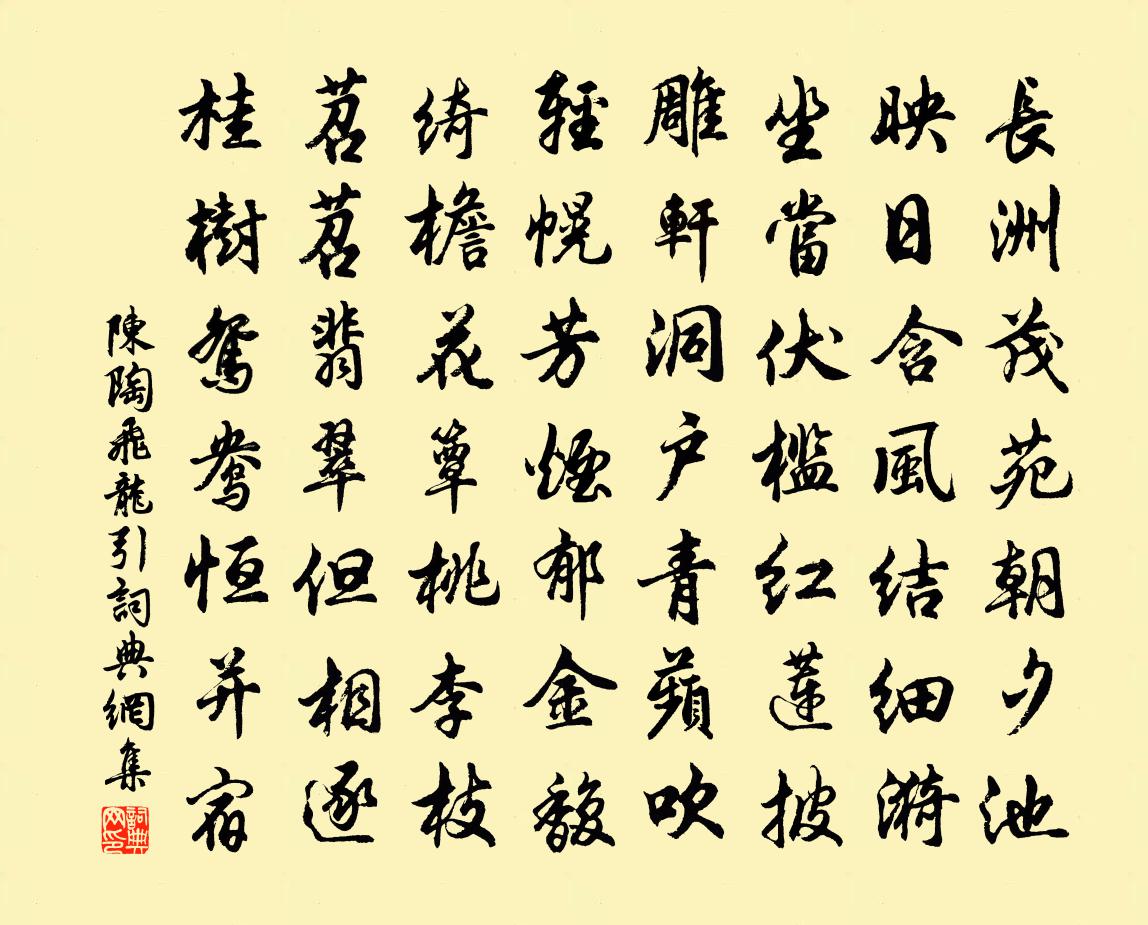 長洲茂苑朝夕池
映日含風結細漪
坐當伏檻紅蓮披
雕軒洞戶青蘋吹
輕幌芳煙郁金馥
綺檐花簟桃李枝
苕苕翡翠但相逐
桂樹鴛鴦恒并宿
陳陶飛龍引詞典網集
詞典網印